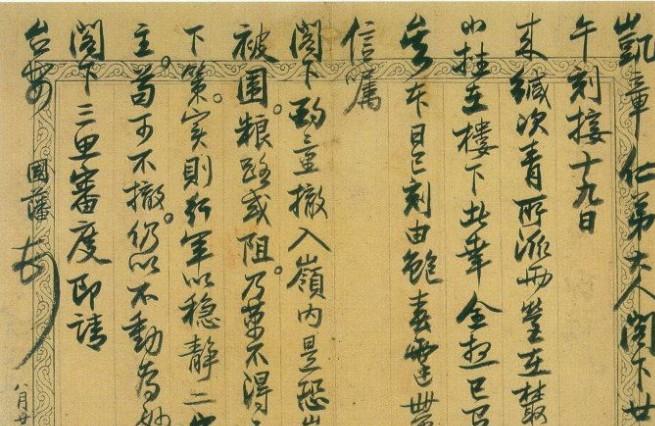 凱章仁弟大人閣下廿
午刻接十九日
來緘次青所派兩營在叢
小挫在樓下此幸全
本日巳刻由鮑春霆
信囑
閣下酌量撤入嶺內是恐
被圍粮路或阻乃萬不得
下策。實則行軍以穩靜二
主。苟可不撤。仍以不動為妙
閣下三思審度即請
台安 國藩
八月廿